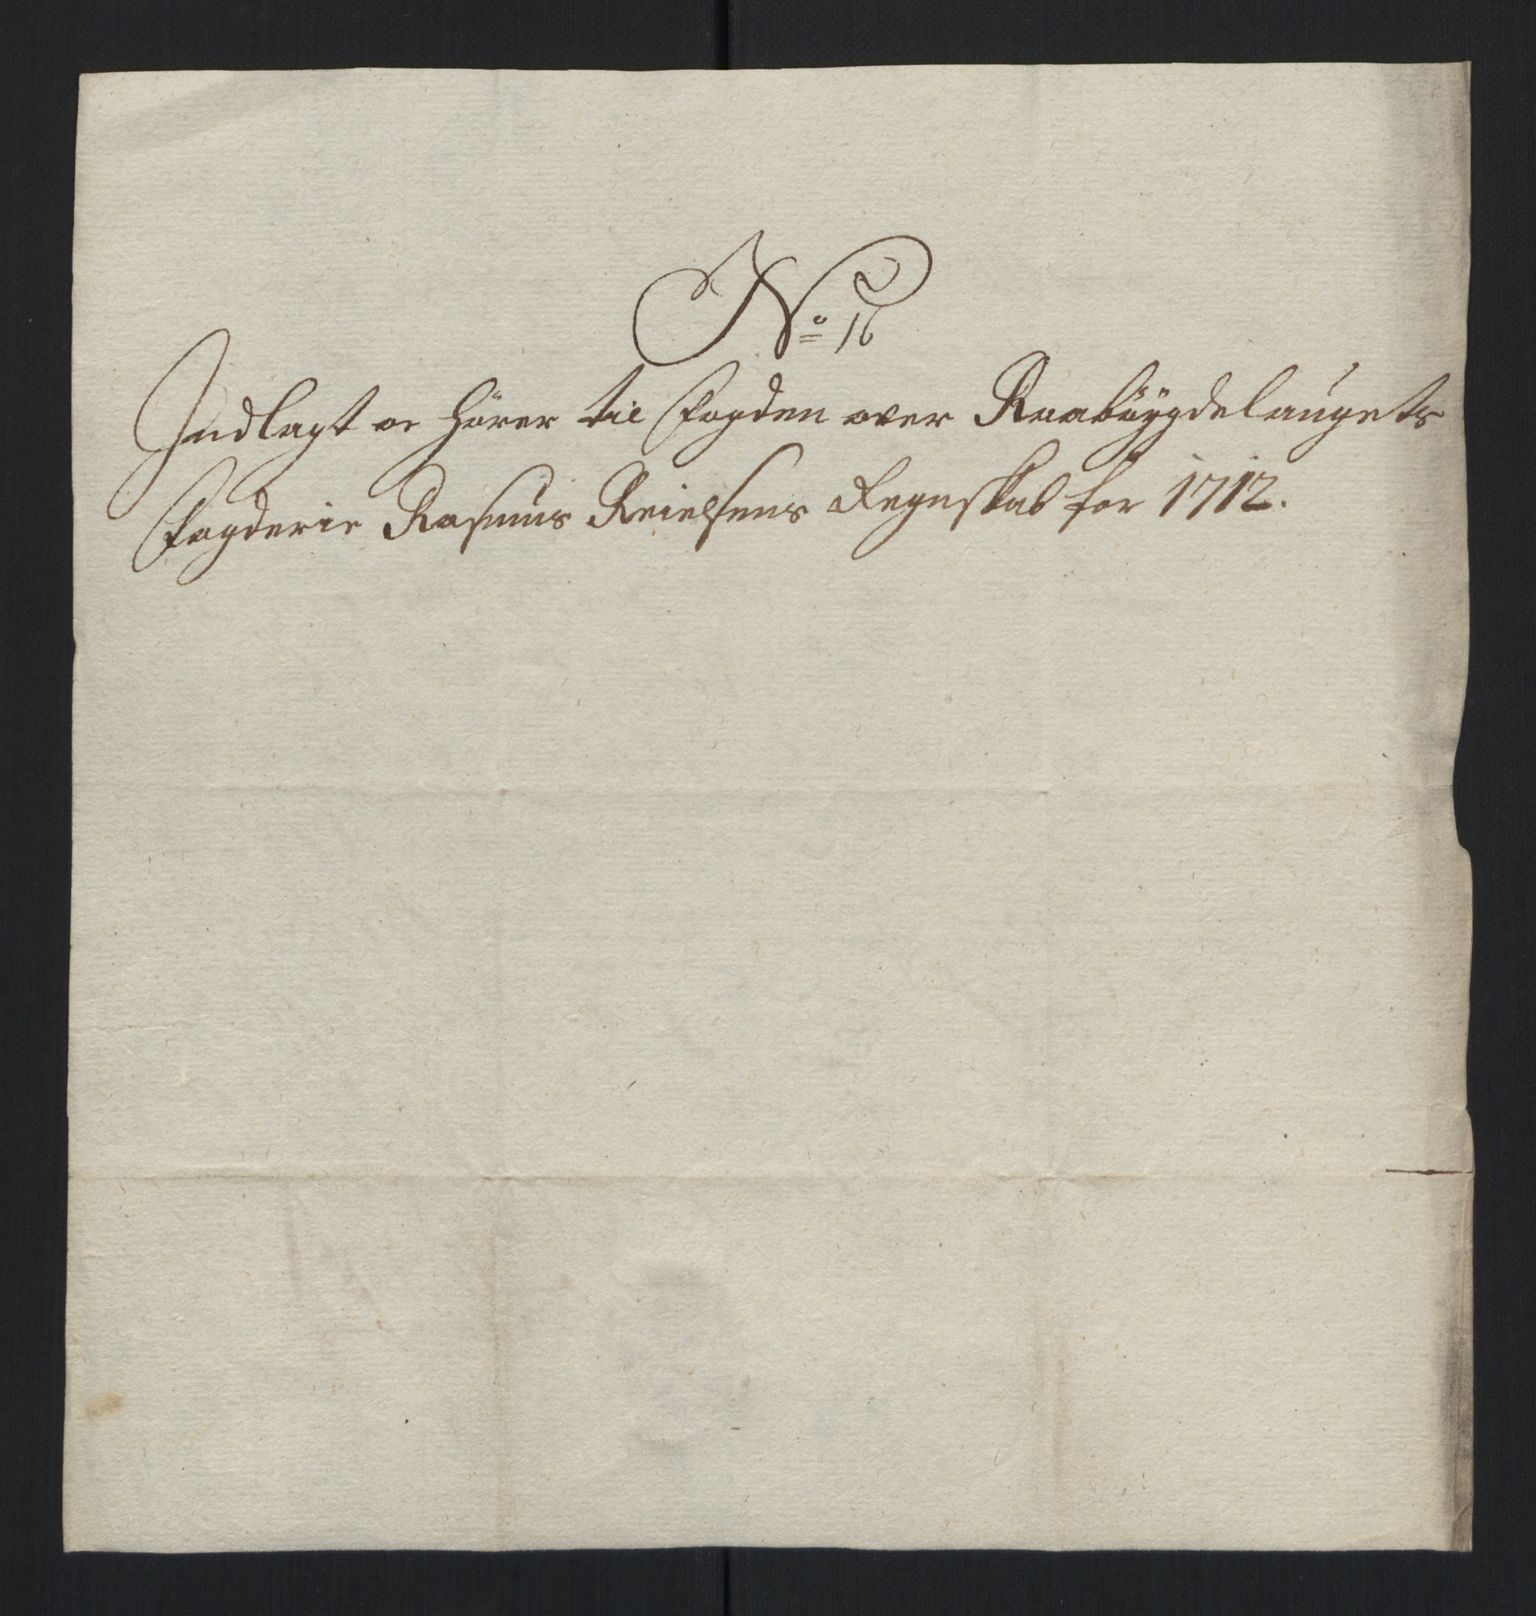 No 16
Indlagt oc hörer til Fogden over Raaböygdelaugets
Fogderie Rasmus Reiersens Regnskab for 1712.